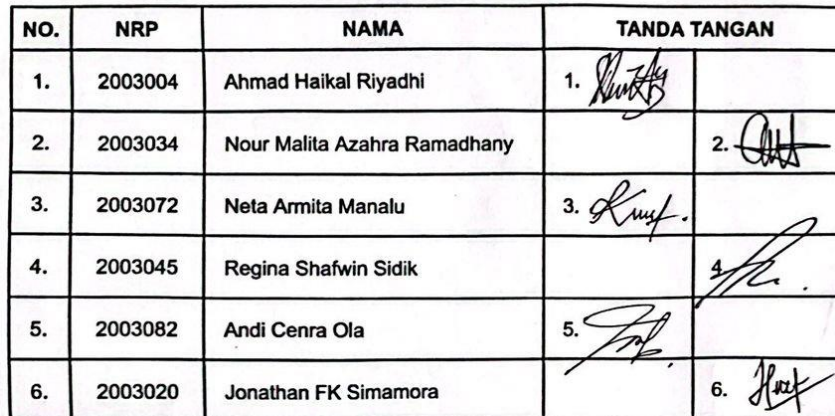 NO. NRP NAMA TANDA TANGAN
1. 2003004 Ahmad Haikal Riyadhi 1.
2. 2003034 Nour Malita Azahra Ramadhany 2.
3. 2003072 Neta Armita Manalu 3.
4. 2003045 Regina Shafwin Sidik 4.
5. 2003082 Andi Cenra Ola 5.
6. 2003020 Jonathan FK Simamora 6.